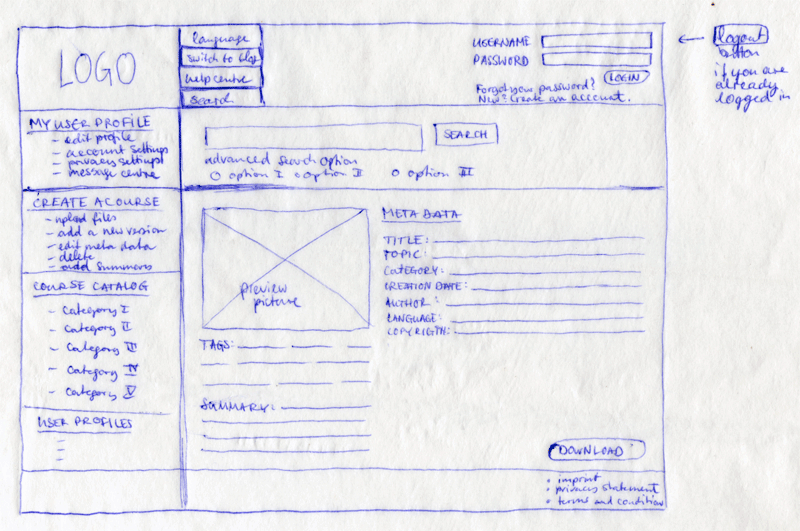 LOGO
language
switch to blog
help centre
search
USERNAME
PASSWORD
LOGIN
Forgot your password?
New? Create an account.
logout
button
if you are
already
logged in
MY USER PROFILE
- edit profile
- account settings
- privacy settings
- message centre
SEARCH
advanced search option
option I option II option III
CREATE A COURSE
- upload files
- add a new version
- edit meta data
- delete
- add summary
COURSE CATALOG
- Category I
- Category II
- Category III
- Category IV
- Category V
USER PROFILES
preview
picture
META DATA
TITLE:
TOPIC:
CATEGORY:
CREATION DATE:
AUTHOR:
LANGUAGE:
COPYRIGTH:
TAGS:
SUMMARY:
DOWNLOAD
• imprint
• privacy statement
• terms and condition